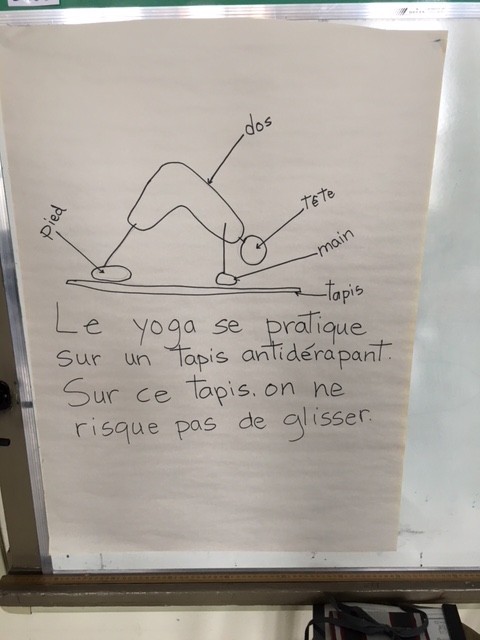 dos
pied
tête
main
tapis
Le yoga se pratique
sur un tapis antidérapant.
Sur ce tapis. on ne
risque pas de glisser.